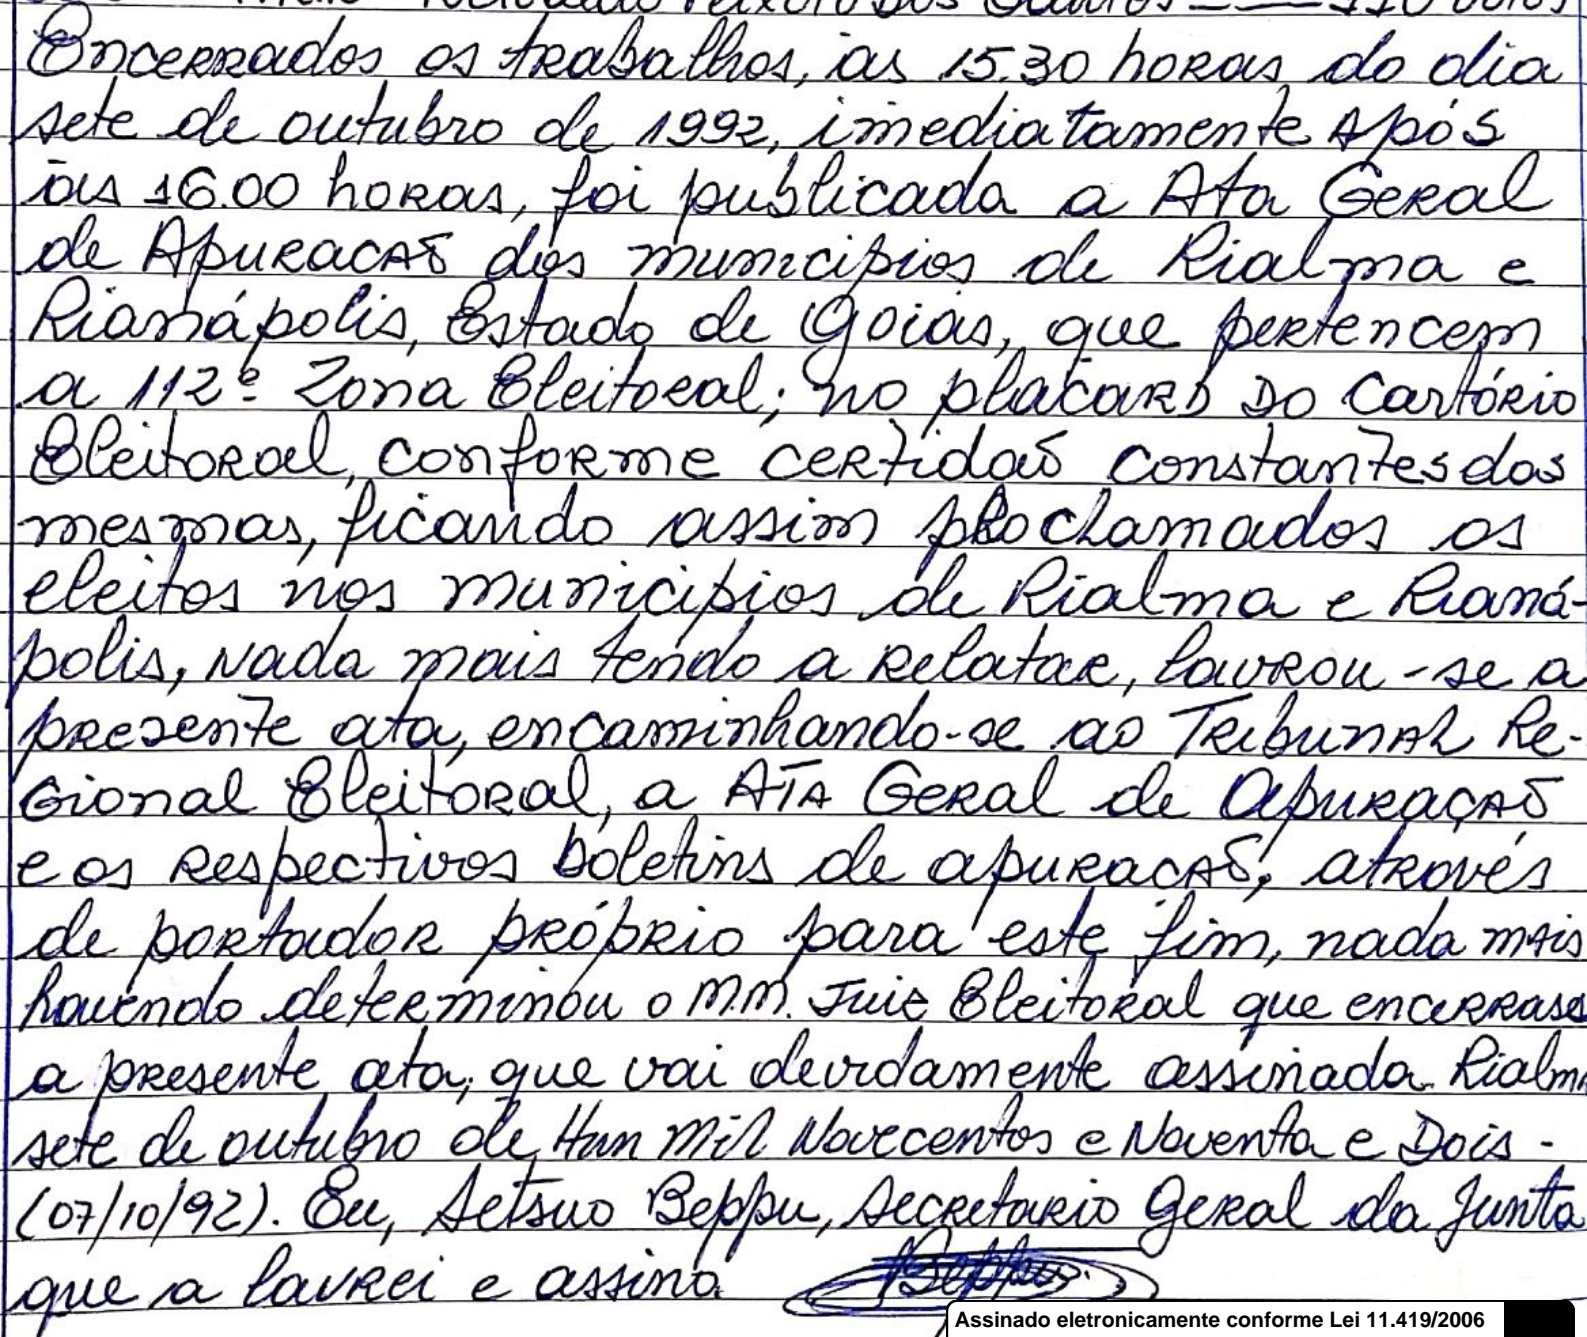 Peixoto dos Santos — 110 votos
Encerrados os trabalhos, às 15.30 horas do dia
sete de outubro de 1992, imediatamente após
às 16.00 horas, foi publicada a Ata Geral
de Apuracaõ dos municipios de Rialma e
Rianápolis, Estado de Goiás, que pertencem
a 112ª Zona Eleitoral; no placard do Cartório
Eleitoral, conforme certidaõ constantes das
mesmas, ficando assim proclamados os
eleitos nos municipios de Rialma e Rianá-
polis, nada mais tendo a relatar, lavrou-se a
presente ata, encaminhando-se ao Tribunal Re-
gional Eleitoral, a Ata Geral de Apuraçaõ
e os respectivos boletins de apuracaõ, através
de portador próprio para este fim, nada mais
havendo determinou o M.M. Juiz Eleitoral que encerrasse
a presente ata, que vai devidamente assinada. Rialma
sete de outubro de Hum Mil Novecentos e Noventa e Dois -
(07/10/92). Eu, Setsuo Beppu, Secretario Geral da Junta
que a lavrei e assino. Beppu
Assinado eletronicamente conforme Lei 11.419/2006